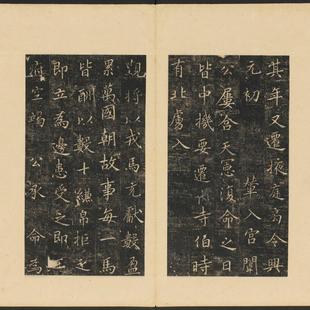 其年又遷掖庭局令興
元初　葦入宮闈
公屢含天憲復命之日
皆中機要遷　寺伯時
有北虜入
覲將以戎馬充獻數盈
累萬國朝故事每一馬
皆酬以數十縑帛拒之
即立為邊患受之即王
府空竭　公承命為